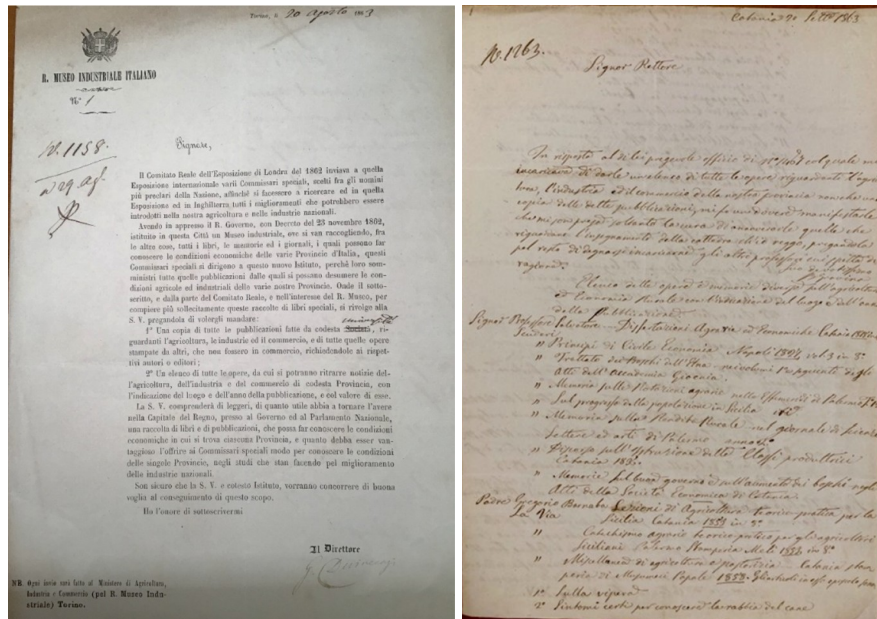 Torino, 20 Agosto 1863
R. MUSEO INDUSTRIALE ITALIANO
N° 1
N. 1158.
a 29. Agt.
Signore,
Il Comitato Reale dell'Esposizione di Londra del 1862 inviava a quella
Esposizione internazionale varii Commissari speciali, scelti fra gli uomini
più preclari della Nazione, affinchè si facessero a ricercare ed in quella
Esposizione ed in Inghilterra tutti i miglioramenti che potrebbero essere
introdotti nella nostra agricoltura e nelle industrie nazionali.
Avendo in appresso il R. Governo, con Decreto del 23 novembre 1862,
istituito in questa Città un Museo industriale, ove si van raccogliendo, fra
le altre cose, tutti i libri, le memorie ed i giornali, i quali possono far
conoscere le condizioni economiche delle varie Provincie d'Italia, questi
Commissari speciali si dirigono a questo nuovo Istituto, perchè loro som-
ministri tutte quelle pubblicazioni dalle quali si possano desumere le con-
dizioni agricole ed industriali delle varie nostre Provincie. Onde il sotto-
scritto, e dalla parte del Comitato Reale, e nell'interesse del R. Museo, per
compiere più sollecitamente queste raccolte di libri speciali, si rivolge alla
S. V. pregandola di volergli mandare:
1° Una copia di tutte le pubblicazioni fatte da codesta Società, ri-
guardanti l'agricoltura, le industrie od il commercio, e di tutte quelle opere
stampate da altri, che non fossero in commercio, richiedendole ai rispet-
tivi autori o editori;
2° Un elenco di tutte le opere, da cui si potranno ritrarre notizie del-
l'agricoltura, dell'industria e del commercio di codesta Provincia, con
l'indicazione del luogo e dell'anno della pubblicazione, e col valore di esse.
La S. V. comprenderà di leggeri, di quanto utile abbia a tornare l'avere
nella Capitale del Regno, presso al Governo ed al Parlamento Nazionale,
una raccolta di libri e di pubblicazioni, che possa far conoscere le condizioni
economiche in cui si trova ciascuna Provincia, e quanto debba esser van-
taggioso l'offrire ai Commissari speciali modo per conoscere le condizioni
delle singole Provincie, negli studi che stan facendo pel miglioramento
delle industrie nazionali.
Son sicuro che la S. V. e cotesto Istituto, vorranno concorrere di buona
voglia al conseguimento di questo scopo.
Ho l'onore di sottoscrivermi
Il Direttore
NB. Ogni invio sarà fatto al Ministero di Agricoltura,
Industria e Commercio (pel R. Museo Indu-
striale) Torino.
Catania 20 Sett. 1863
N. 1263.
Signor Rettore
In risposta al di lei pregevole officio di
incaricava di darle un elenco di tutte le opere riguardanti l'agricol
tura, l'industria ed il commercio della nostra provincia nonchè una
copia delle dette pubblicazioni, mi fo un dovere manifestarle
che
riguardano l'insegnamento della cattedra che io reggo, pregandola
pel resto di degnarsi incaricarne gli altri professori cui spetta di
ragione.
Elenco delle opere e memorie diverse sull'agricoltura
ed Economia Rurale con l'indicazione del luogo e dell'anno
della pubblicazione
Signor Professore Salvatore Dissertazioni Agrarie ed Economiche Catania
Scuderi
" Principi di Civile Economia Napoli 1827 vol. 3 in 8°
" Trattato dei Boschi dell'Etna
Atti dell'Accademia Gioenia
" Memoria sulle
" Sul progresso della popolazione in Sicilia
" Memoria sulla Rendita Rurale nel giornale di Scienze
Lettere ed arti di Palermo
" Discorso sull'Istruzione delle Classi produttrici
Catania
" Memoria sul buon governo e sull'aumento dei boschi negli
Atti della Società Economica di Catania.
Padre Gregorio Barnaba Lezioni di Agricoltura teorico-pratica per la
La Via Sicilia Catania 1853 in 8°
" Catechismo agrario teorico-pratico per gli agricoltori
Siciliani Palermo Stamperia Meli in 8°
" Miscellanea di agricoltura e pastorizia Catania stam
peria di 1858.
1° Sulla vipera
2° Sintomi certi per conoscere la rabbia del cane